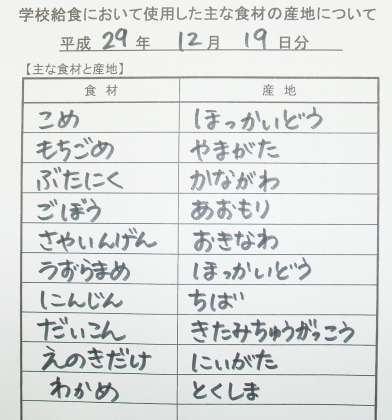 学校給食において使用した主な食材の産地について
平成 29 年 12 月 19 日分
【主な食材と産地】
食材 産地
こめ ほっかいどう
もちごめ やまがた
ぶたにく かながわ
ごぼう あおもり
さやいんげん おきなわ
うずらまめ ほっかいどう
にんじん ちば
だいこん きたみちゅうがっこう
えのきだけ にいがた
わかめ とくしま